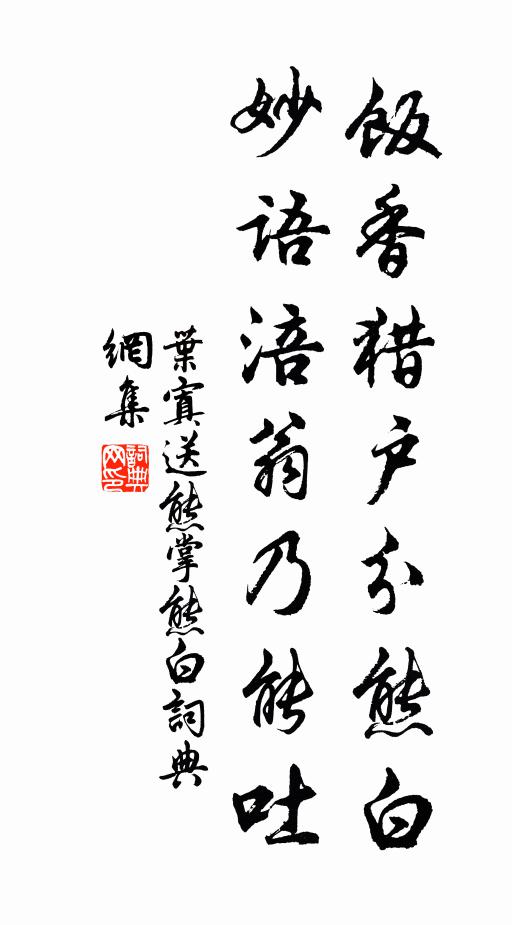 飯香猎户分熊白
妙語涪翁乃能吐
葉寘送熊掌熊白詞典
網集
詞典網印